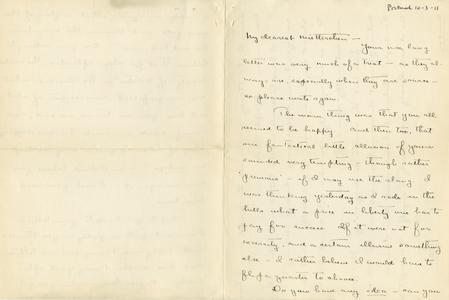 Postmark 10-3-11
My dearest
Your nice long
letter was very much of a treat – as they al-
ways are, especially when they are scarce –
so please write again.
The main thing was that you all
seemed to be happy and then too, that
one fantastical little allusion of yours
sounded very tempting – though rather
– if I may use the slang. I
was thinking yesterday as I rode in the
hills what a price in liberty one has to
pay for success. If it were not for
curiosity, and a certain illusive something
else – I rather believe I would have to
flip a quarter to choose.
Do you have any idea – can you